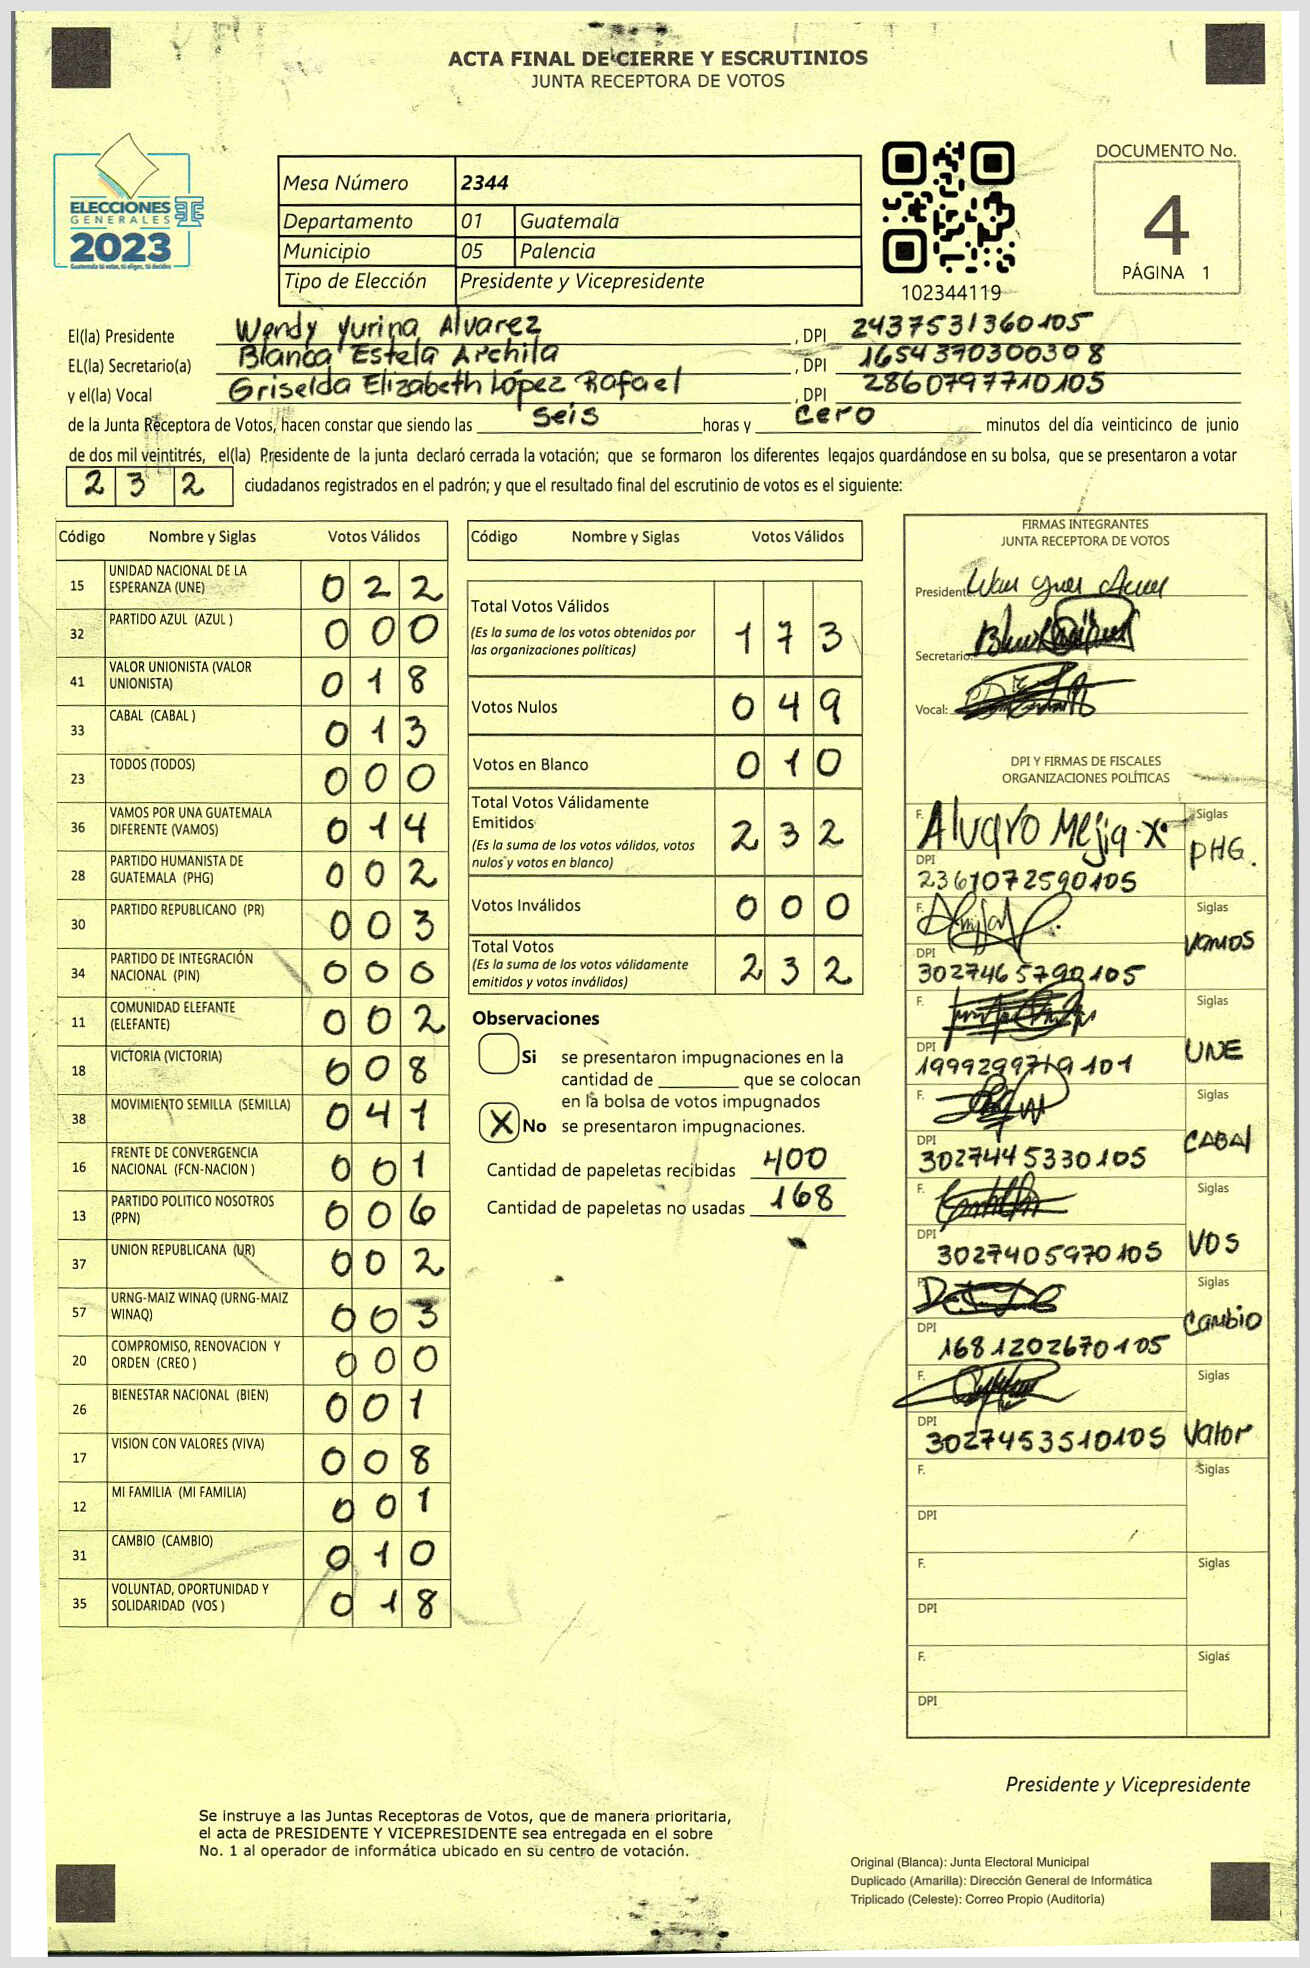 ACTA FINAL DE CIERRE Y ESCRUTINIOS
JUNTA RECEPTORA DE VOTOS
ELECCIONES
GENERALES
2023
Guatemala tú votas, tú eliges, tú decides
Mesa Número 2344
Departamento 01 Guatemala
Municipio 05 Palencia
Tipo de Elección Presidente y Vicepresidente
102344119
DOCUMENTO No.
4
PÁGINA 1
El(la) Presidente Wendy Yurina Alvarez , DPI 2437531360105
EL(la) Secretario(a) Blanca Estela Archila , DPI 1654370300308
y el(la) Vocal Griselda Elizabeth López Rafael , DPI 2860797710105
de la Junta Receptora de Votos, hacen constar que siendo las seis horas y cero minutos del día veinticinco de junio
de dos mil veintitrés, el(la) Presidente de la junta declaró cerrada la votación; que se formaron los diferentes legajos guardándose en su bolsa, que se presentaron a votar
232 ciudadanos registrados en el padrón; y que el resultado final del escrutinio de votos es el siguiente:
Código Nombre y Siglas Votos Válidos
15 UNIDAD NACIONAL DE LA ESPERANZA (UNE) 022
32 PARTIDO AZUL (AZUL ) 000
41 VALOR UNIONISTA (VALOR UNIONISTA) 018
33 CABAL (CABAL ) 013
23 TODOS (TODOS) 000
36 VAMOS POR UNA GUATEMALA DIFERENTE (VAMOS) 014
28 PARTIDO HUMANISTA DE GUATEMALA (PHG) 002
30 PARTIDO REPUBLICANO (PR) 003
34 PARTIDO DE INTEGRACIÓN NACIONAL (PIN) 000
11 COMUNIDAD ELEFANTE (ELEFANTE) 002
18 VICTORIA (VICTORIA) 008
38 MOVIMIENTO SEMILLA (SEMILLA) 041
16 FRENTE DE CONVERGENCIA NACIONAL (FCN-NACION ) 001
13 PARTIDO POLITICO NOSOTROS (PPN) 006
37 UNION REPUBLICANA (UR) 002
57 URNG-MAIZ WINAQ (URNG-MAIZ WINAQ) 003
20 COMPROMISO, RENOVACION Y ORDEN (CREO ) 000
26 BIENESTAR NACIONAL (BIEN) 001
17 VISION CON VALORES (VIVA) 008
12 MI FAMILIA (MI FAMILIA) 001
31 CAMBIO (CAMBIO) 010
35 VOLUNTAD, OPORTUNIDAD Y SOLIDARIDAD (VOS ) 018
Código Nombre y Siglas Votos Válidos
Total Votos Válidos 173
(Es la suma de los votos obtenidos por
las organizaciones políticas)
Votos Nulos 049
Votos en Blanco 010
Total Votos Válidamente
Emitidos 232
(Es la suma de los votos válidos, votos
nulos y votos en blanco)
Votos Inválidos 000
Total Votos 232
(Es la suma de los votos válidamente
emitidos y votos inválidos)
Observaciones
Si se presentaron impugnaciones en la
cantidad de ________ que se colocan
en la bolsa de votos impugnados
X No se presentaron impugnaciones.
Cantidad de papeletas recibidas 400
Cantidad de papeletas no usadas 168
FIRMAS INTEGRANTES
JUNTA RECEPTORA DE VOTOS
Presidente:
Secretario:
Vocal:
DPI Y FIRMAS DE FISCALES
ORGANIZACIONES POLÍTICAS
F. Alvaro Mejia X Siglas PHG.
DPI 2361072590105
F. Siglas VAMOS
DPI 3027465790105
F. Siglas UNE
DPI 1999299719101
F. Siglas CABAl
DPI 3027445330105
F. Siglas VOS
DPI 3027405970105
F. Siglas Cambio
DPI 1681202670105
F. Siglas Valor
DPI 3027453510105
F. Siglas
DPI
F. Siglas
DPI
F. Siglas
DPI
Presidente y Vicepresidente
Se instruye a las Juntas Receptoras de Votos, que de manera prioritaria,
el acta de PRESIDENTE Y VICEPRESIDENTE sea entregada en el sobre
No. 1 al operador de informática ubicado en su centro de votación.
Original (Blanca): Junta Electoral Municipal
Duplicado (Amarilla): Dirección General de Informática
Triplicado (Celeste): Correo Propio (Auditoría)